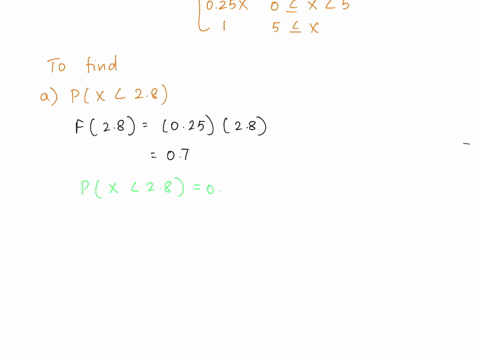 0.25X 0 ≤ X < 5
1 5 ≤ X
To find
a) P(X < 2.8)
F(2.8) = (0.25)(2.8)
= 0.7
P(X < 2.8) = 0.